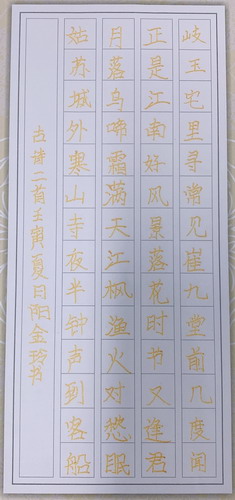 岐王宅里寻常见崔九堂前几度闻
正是江南好风景落花时节又逢君
月落乌啼霜满天江枫渔火对愁眠
姑苏城外寒山寺夜半钟声到客船
古诗二首壬寅夏日阳金玲书